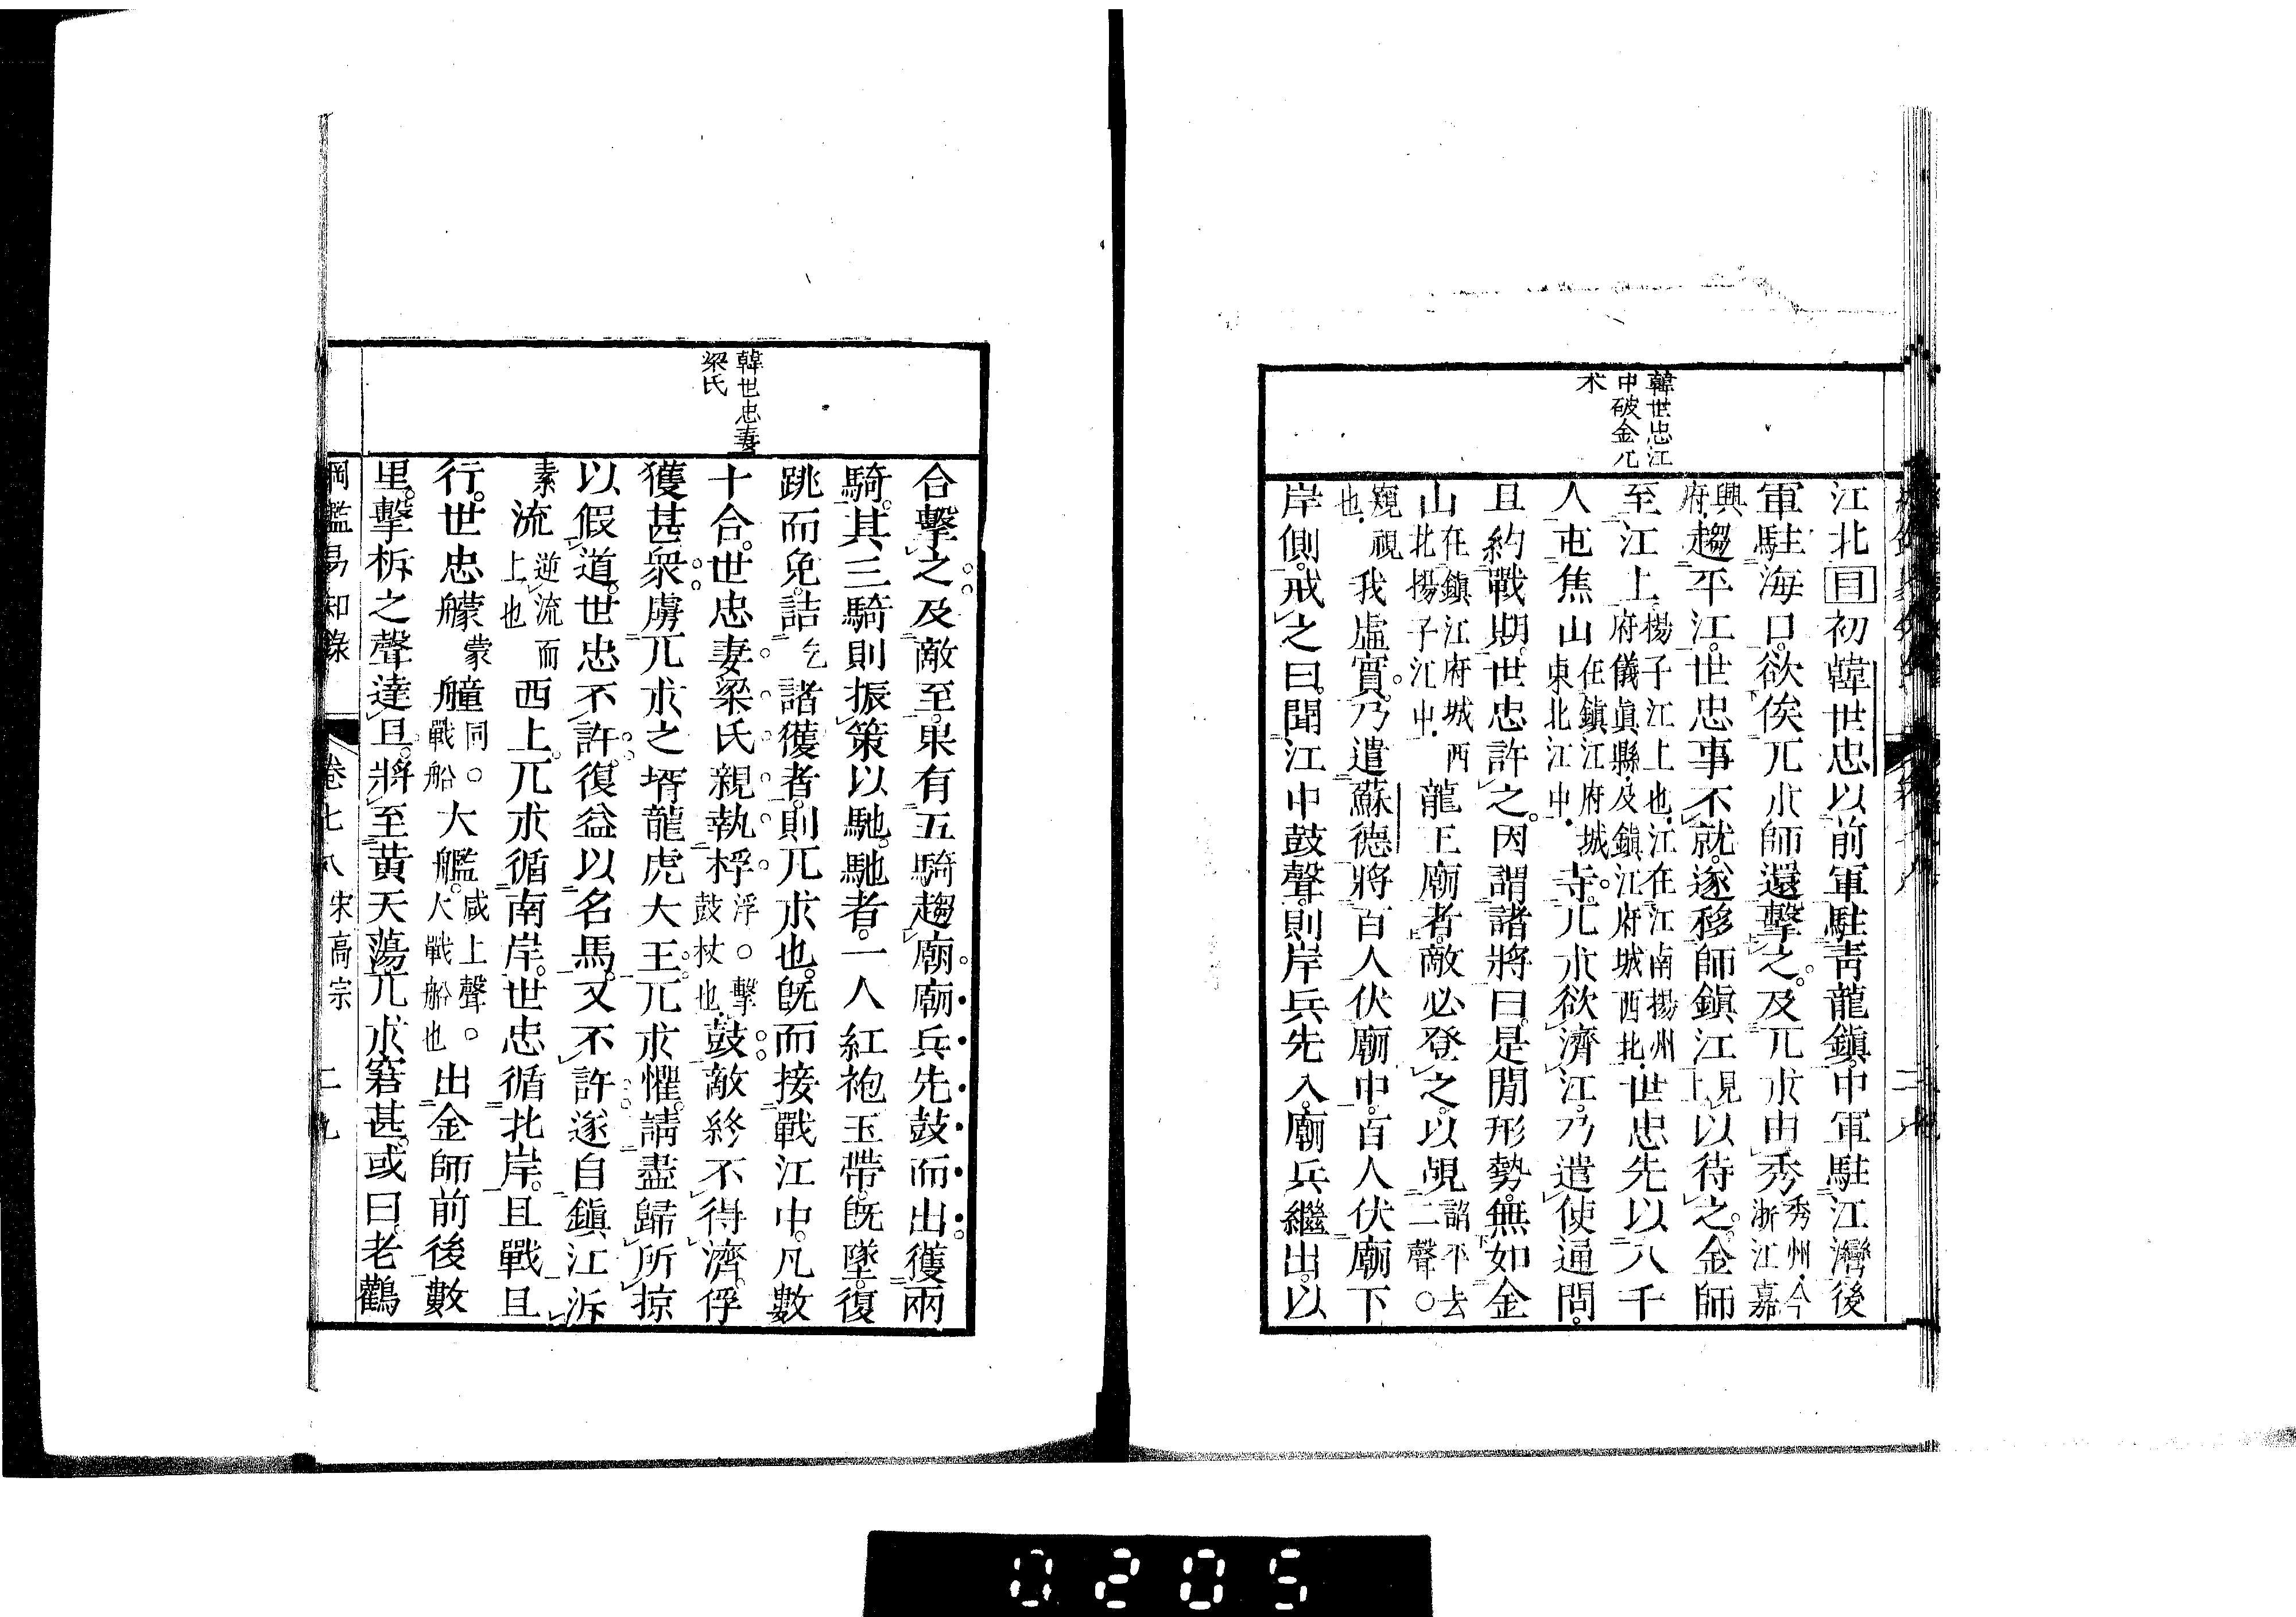 韓世忠江
中破金兀
朮
江北目初韓世忠以前軍駐青龍鎮中軍駐江灣後
軍駐海口欲俟兀朮師還擊之及兀朮由秀秀州今浙江嘉
興府趨平江世忠事不就遂移師鎮江見上以待之金師
至江上楊子江上也江在江南揚州府儀眞縣及鎮江府城西北世忠先以八千
人屯焦山在鎮江府城東北江中寺兀朮欲濟江乃遣使通問
且約戰期世忠許之因謂諸將曰是閒形勢無如金
山在鎮江府城西北揚子江中龍王廟者敵必登之以覘諂平去二聲○
窺視也我虛實乃遣蘇德將百人伏廟中百人伏廟下
岸側戒之曰聞江中鼓聲則岸兵先入廟兵繼出以
韓世忠妻
梁氏
合擊之及敵至果有五騎趨廟廟兵先鼓而出獲兩
騎其三騎則振策以馳馳者一人紅袍玉帶旣墜復
跳而免詰乞諸獲者則兀朮也旣而接戰江中凡數
十合世忠妻梁氏親執桴浮○擊鼓杖也鼓敵終不得濟俘
獲甚衆虜兀朮之壻龍虎大王兀朮懼請盡歸所掠
以假道世忠不許復益以名馬又不許遂自鎮江泝
素流逆流而上也西上兀朮循南岸世忠循北岸且戰且
行世忠艨蒙艟同○戰船大艦咸上聲○大戰船也出金師前後數
里擊柝之聲達旦將至黃天蕩兀朮窘甚或曰老鸛
綱鑑易知錄 卷七八 宋高宗 二九
0205